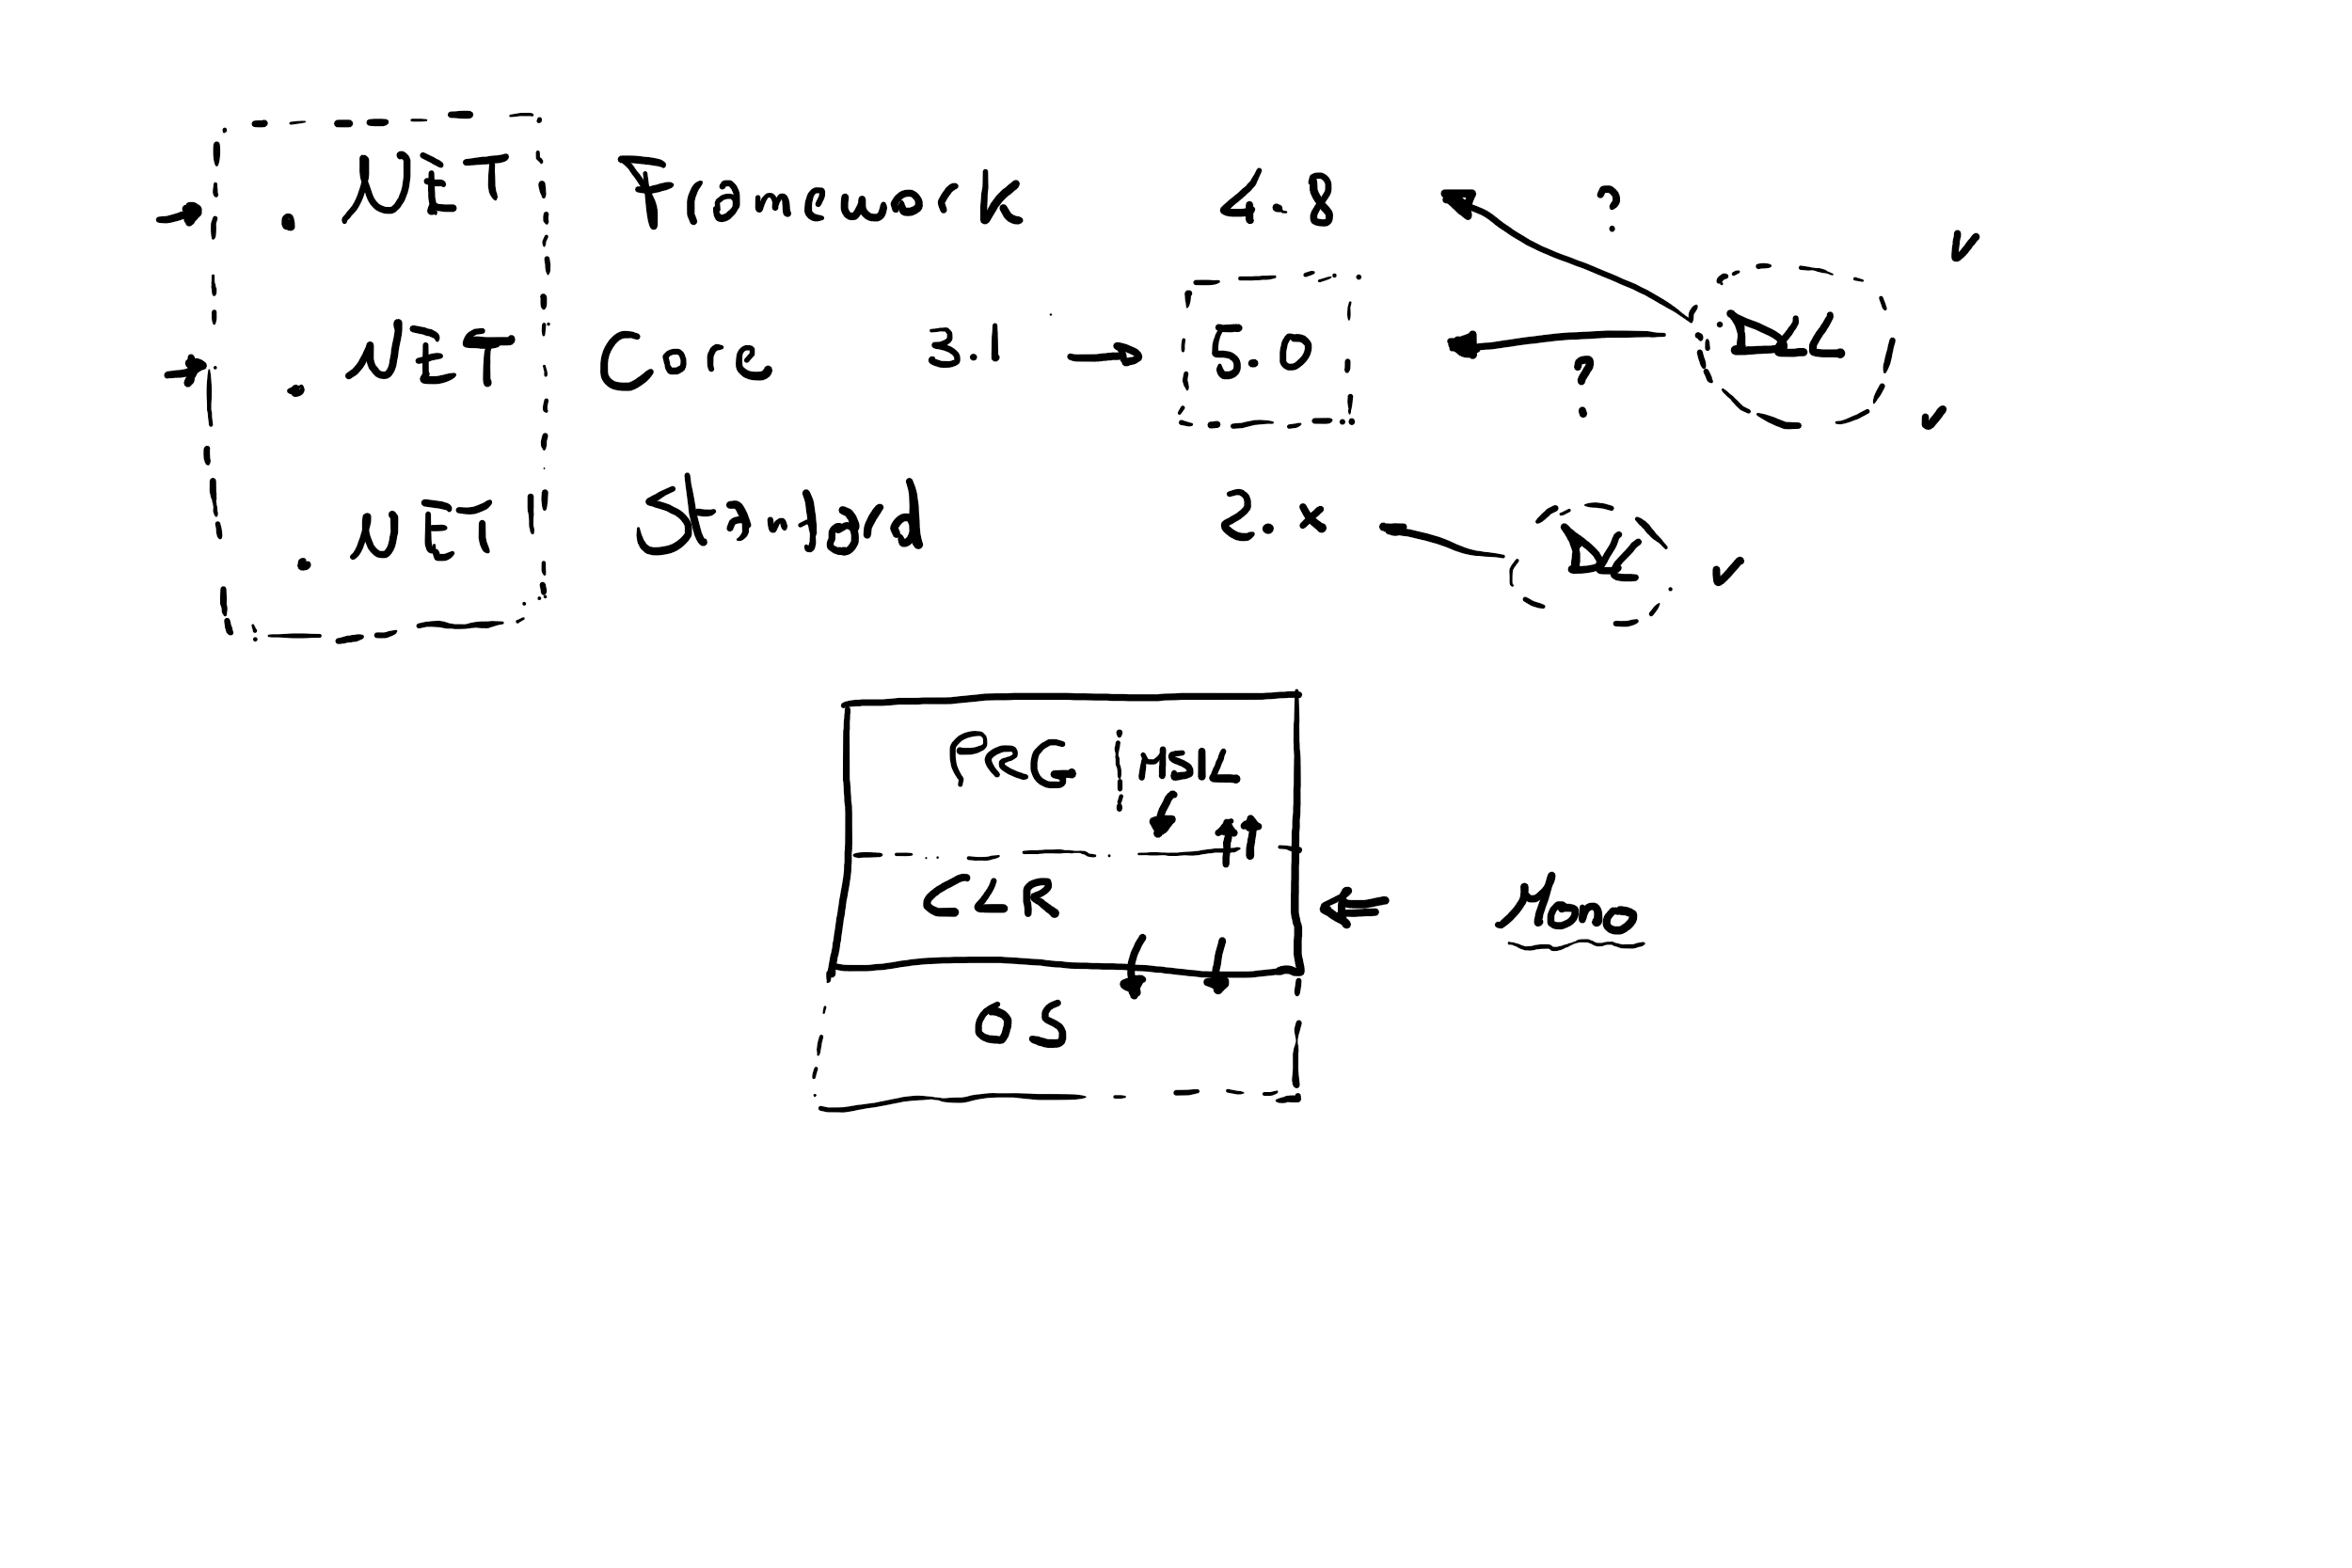 .NET Framework 4.8 ?
.NET Core 3.1 → 5.0 ? DLL
.NET Standard 2.x DLL
PRG MSIL
CLR
Mono
OS